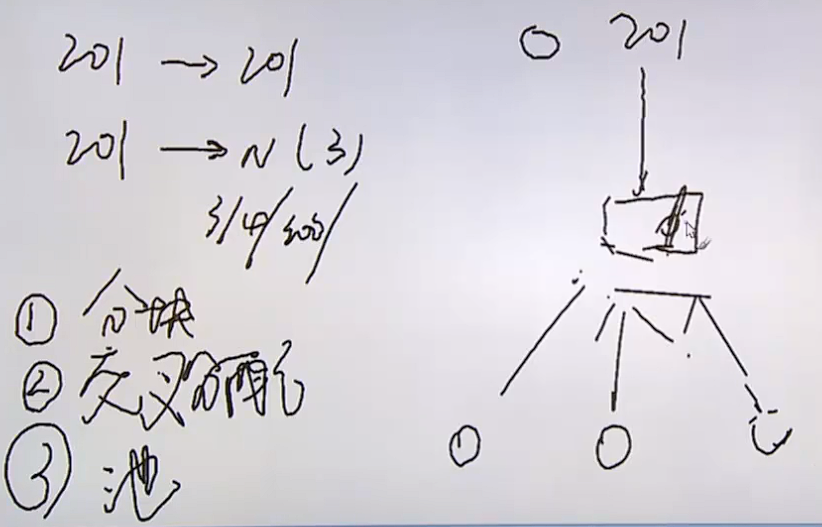 201 → 201
201 → N (3)
3/4/200/
① 分块
② 交叉分配
③ 池
201